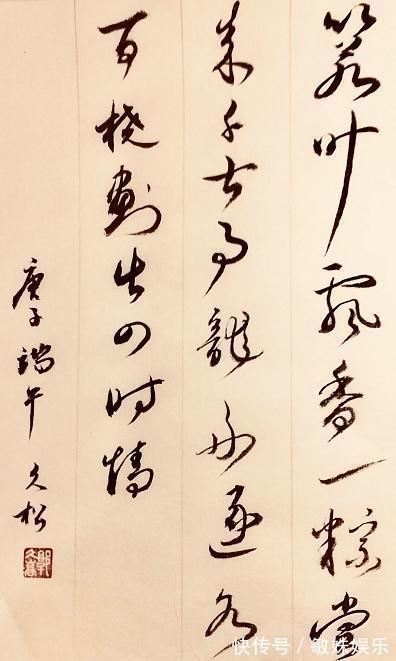 箬叶飘香一粽尝
来千古事龙舟逐水
百桡划出四时情
庚子端午 久松
快传号／敏姝娱乐